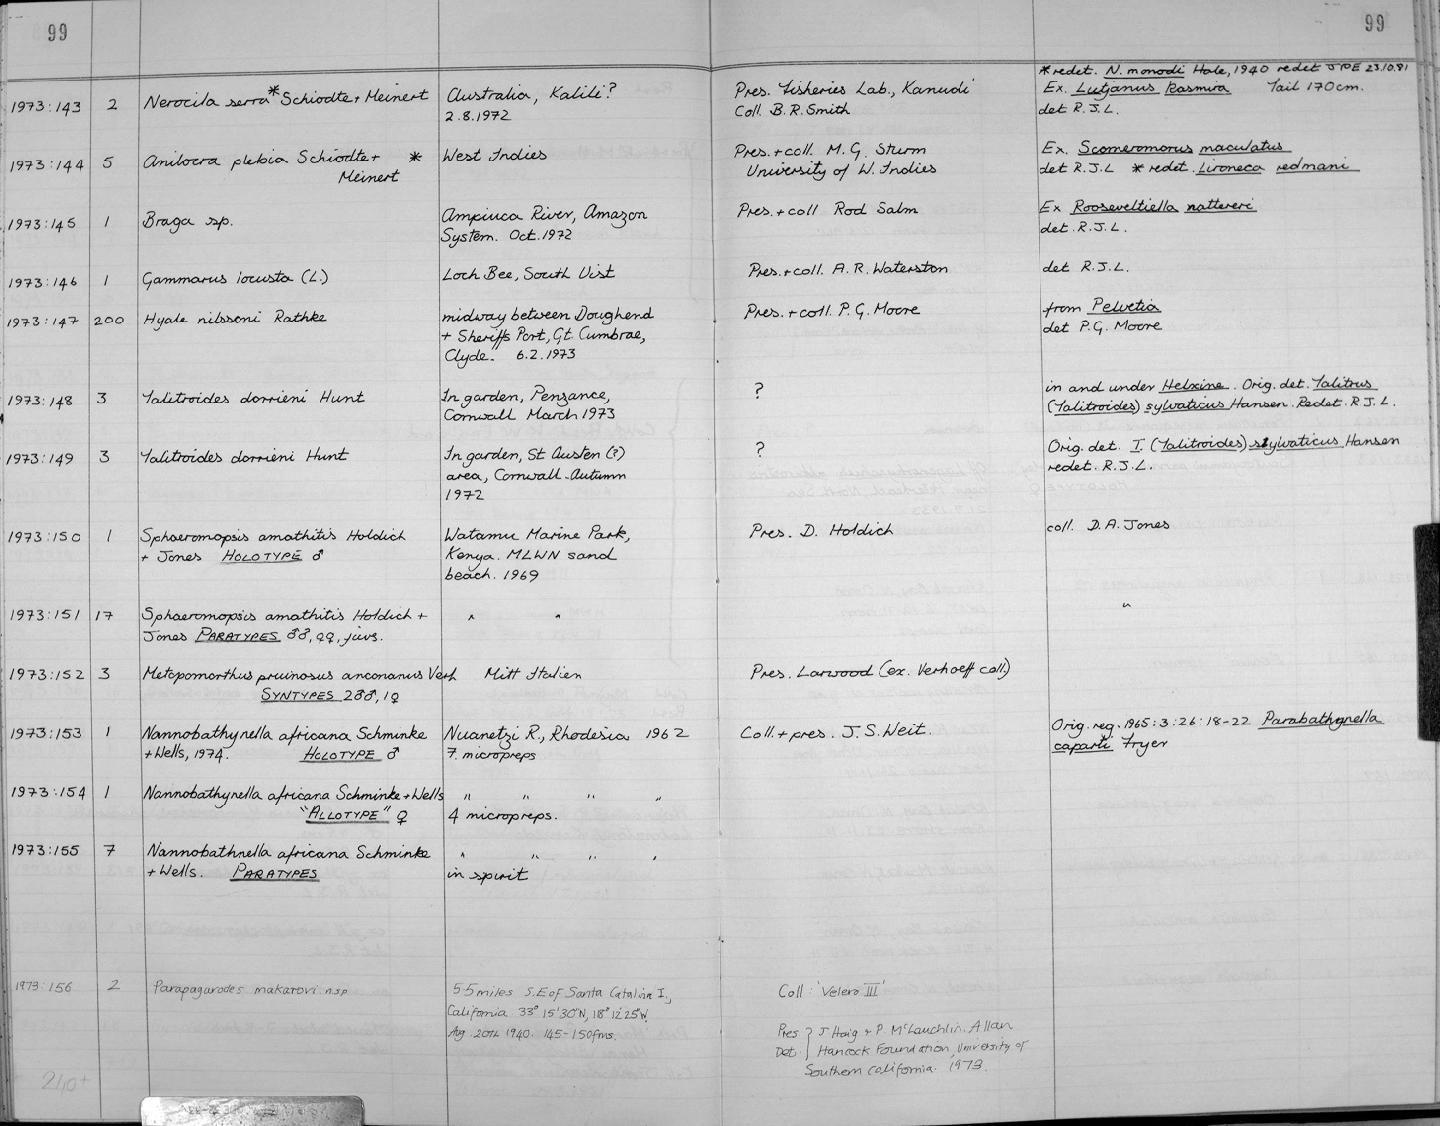 99
99
*redet. N. monodi Hale, 1940 redet JPE 23.10.81
1973:143 2 Nerocila serra* Schiodte + Meinert Australia, Kalili? Pres. Fisheries Lab., Kanudi Ex. Lutjanus Rasmira Tail 170cm.
2.8.1972 Coll. B.R. Smith det R.J.L.
1973:144 5 Anilocra plebia Schiodte + * West Indies Pres. + coll. M.G. Sturm Ex. Scomeromorus maculatus
Meinert University of W. Indies det R.J.L *redet. Lironeca redmani
1973:145 1 Braga sp. Ampiuca River, Amazon Pres. + coll Rod Salm Ex Rooseveltiella nattereri
System. Oct. 1972 det. R.J.L.
1973:146 1 Gammarus locusta (L.) Loch Bee, South Uist Pres. + coll. A.R. Waterston det R.J.L.
1973:147 200 Hyale nilssoni Rathke midway between Doughend Pres. + coll. P.G. Moore from Pelvetia
+ Sheriffs Port, Gt. Cumbrae, det P.G. Moore
Clyde. 6.2.1973
1973:148 3 Talitroides dorrieni Hunt In garden, Penzance, ? in and under Helxine. Orig. det. Talitrus
Cornwall March 1973 (Talitroides) sylvaticus Hansen. Redet. R.J.L.
1973:149 3 Talitroides dorrieni Hunt In garden, St Austen (?) ? Orig. det. T. (Talitroides) sylvaticus Hansen
area, Cornwall. Autumn redet. R.J.L.
1972
1973:150 1 Sphaeromopsis amathitis Holdich Watamu Marine Park, Pres. D. Holdich coll. D.A. Jones
+ Jones HOLOTYPE ♂ Kenya. MLWN sand
beach. 1969
1973:151 17 Sphaeromopsis amathitis Holdich + " " "
Jones PARATYPES ♂♂, ♀♀, juvs.
1973:152 3 Metopomorthus pruinosus anconanus Verh Mitt Italien Pres. Larwood (ex. Verhoeff coll.)
SYNTYPES 2♂♂, 1♀
1973:153 1 Nannobathynella africana Schminke Nuanetzi R., Rhodesia 1962 Coll. + pres. J.S. Weit. Orig. reg. 1965:3:26:18-22 Parabathynella
+ Wells, 1974. HOLOTYPE ♂ 7. micropreps caparti Fryer
1973:154 1 Nannobathynella africana Schminke + Wells " " " "
"ALLOTYPE" ♀ 4 micropreps.
1973:155 7 Nannobathnella africana Schminke " " " "
+ Wells. PARATYPES in spirit
1973:156 2 Parapagurodes makarovi n.sp 5.5 miles S.E of Santa Catalina I., Coll: 'Velero III'
California 33° 15'30"N, 118° 12'25"W.
Aug. 20th 1940. 145-150fms. Pres } J Haig + P. McLaughlin. Allan
Det. } Hancock Foundation, University of
Southern California. 1973.
240+